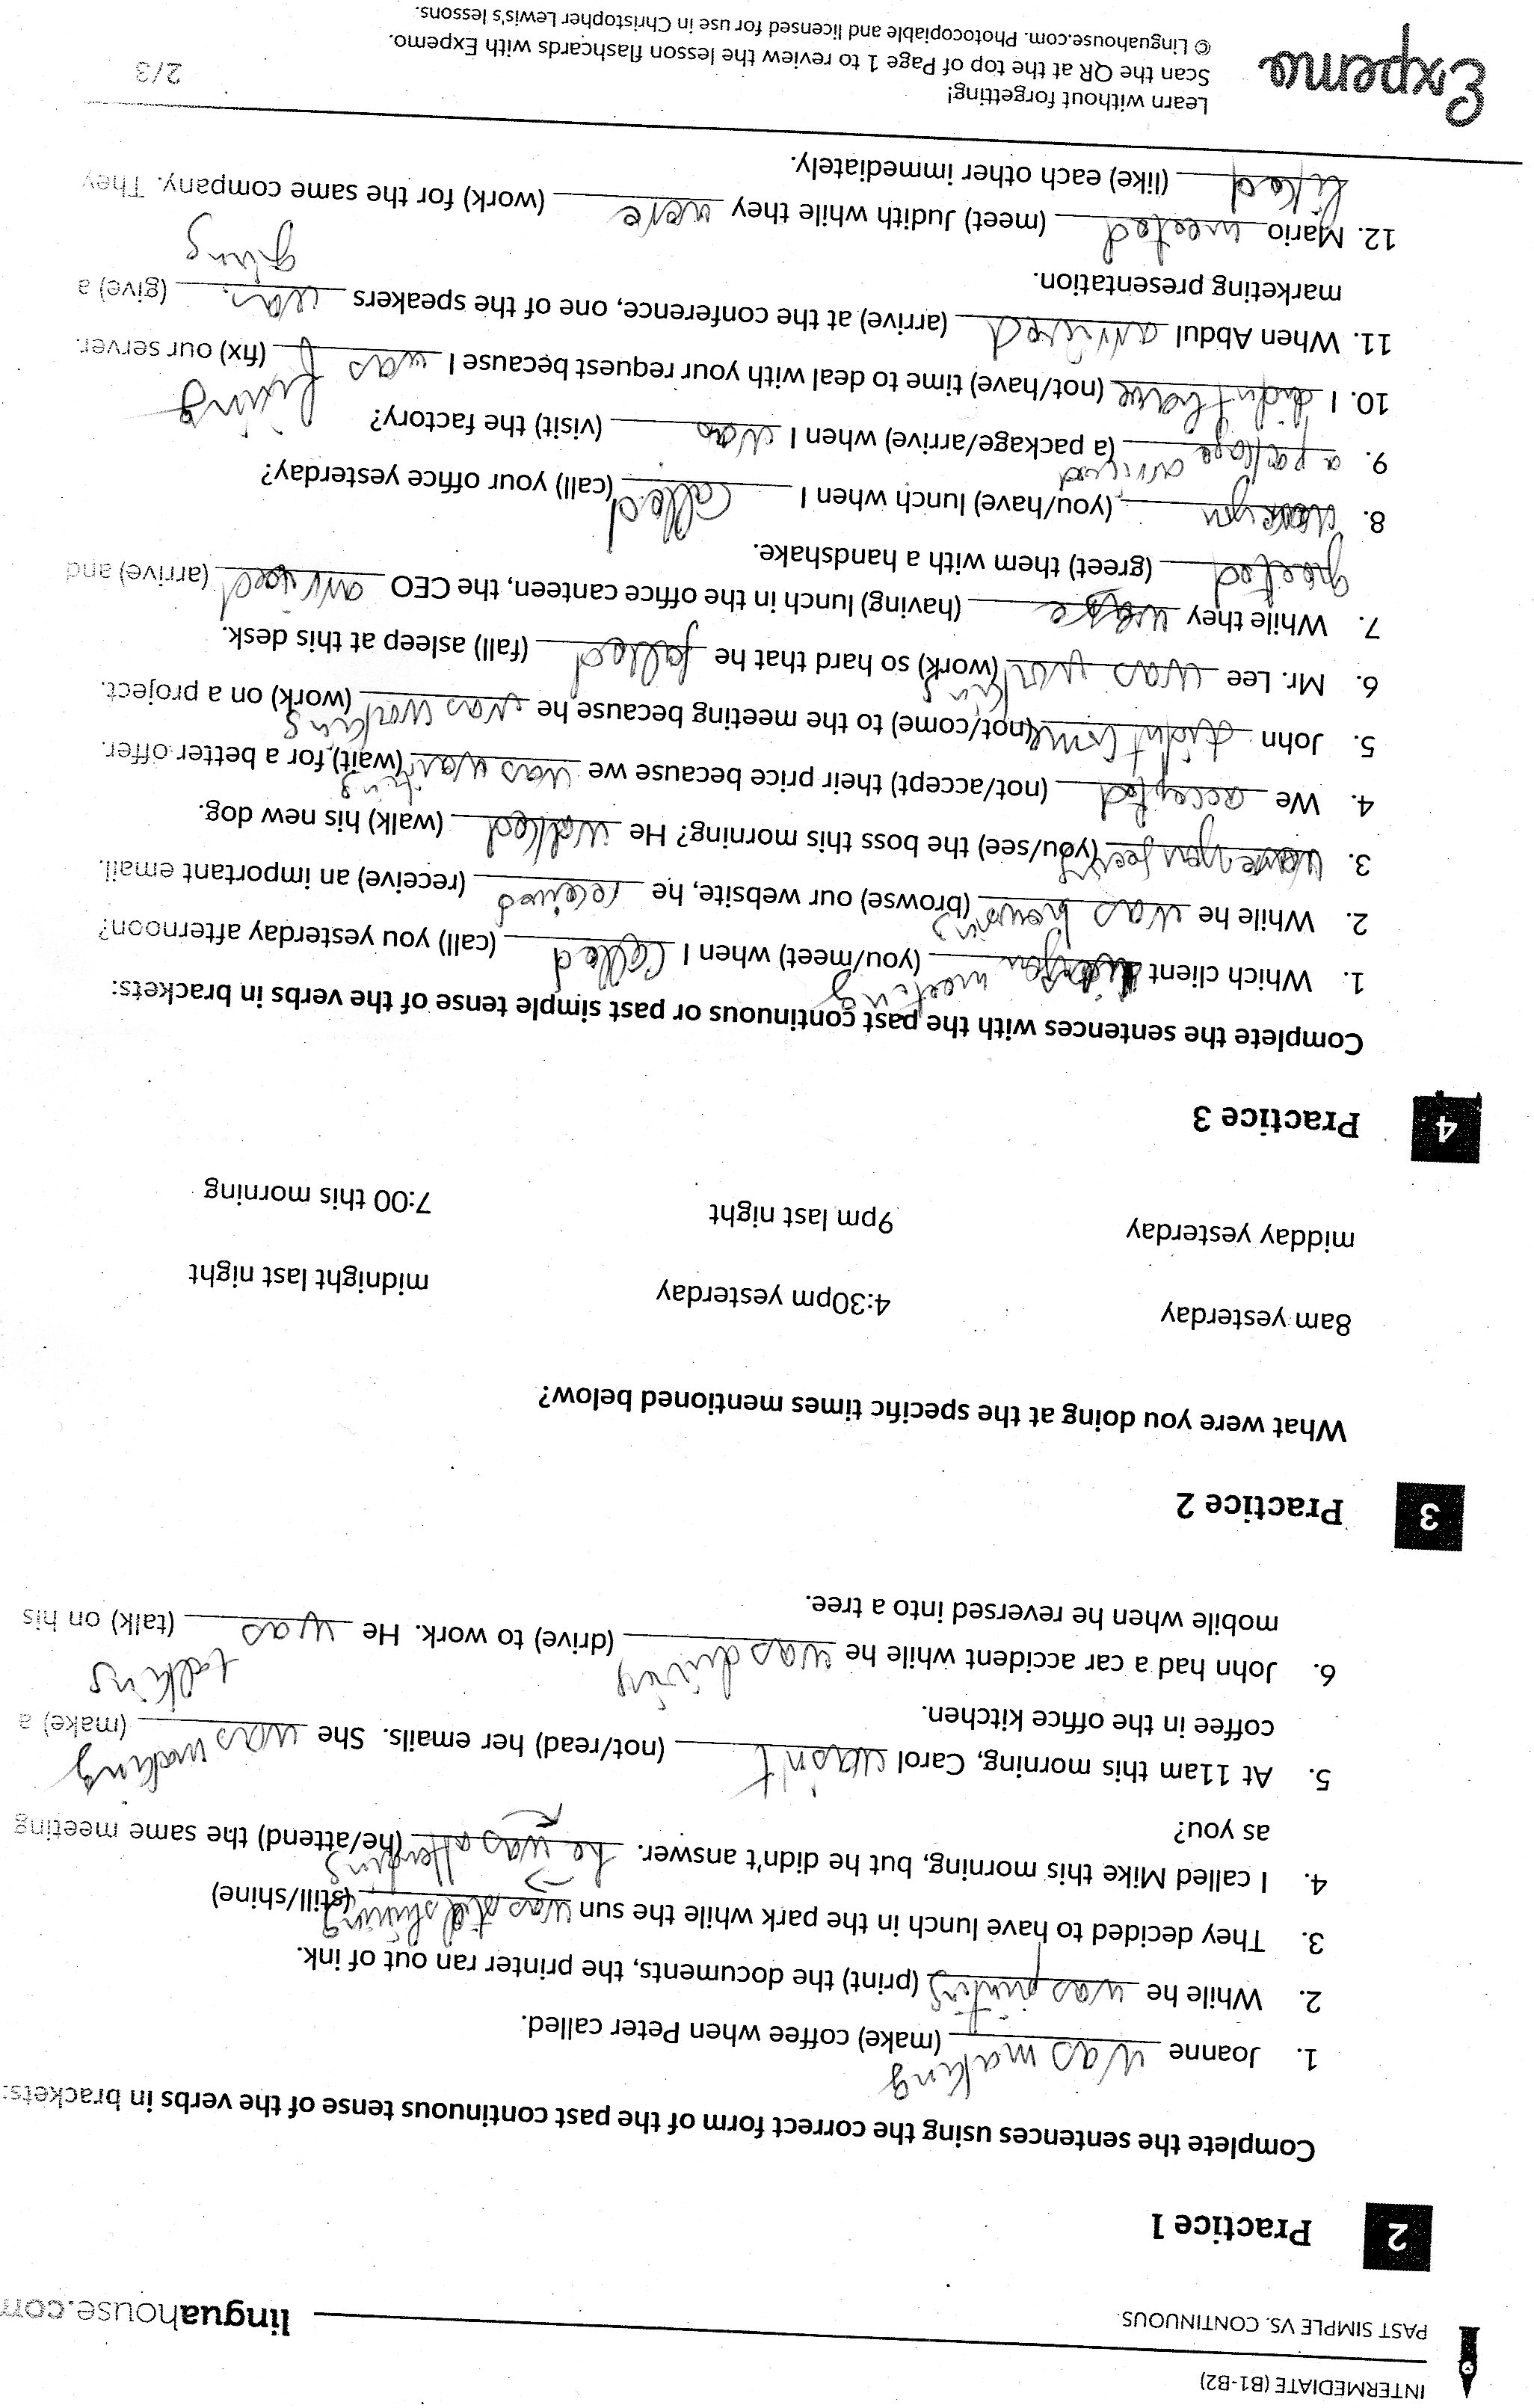 INTERMEDIATE (B1-B2)
PAST SIMPLE VS. CONTINUOUS
linguahouse.com
2 Practice 1
Complete the sentences using the correct form of the past continuous tense of the verbs in brackets:
1. Joanne was making (make) coffee when Peter called.
2. While he was printing (print) the documents, the printer ran out of ink.
3. They decided to have lunch in the park while the sun was still shining (still/shine)
4. I called Mike this morning, but he didn't answer. he was attending (he/attend) the same meeting
as you?
5. At 11am this morning, Carol wasn't (not/read) her emails. She was making (make) a
coffee in the office kitchen.
6. John had a car accident while he was driving (drive) to work. He was talking (talk) on his
mobile when he reversed into a tree.
3 Practice 2
What were you doing at the specific times mentioned below?
8am yesterday 4:30pm yesterday midnight last night
midday yesterday 9pm last night 7:00 this morning
4 Practice 3
Complete the sentences with the past continuous or past simple tense of the verbs in brackets:
1. Which client you meeting (you/meet) when I called (call) you yesterday afternoon?
2. While he was (browse) our website, he received (receive) an important email.
3. you (you/see) the boss this morning? He walked (walk) his new dog.
4. We accepted (not/accept) their price because we was waiting (wait) for a better offer.
5. John didn't come (not/come) to the meeting because he was working (work) on a project.
6. Mr. Lee was working (work) so hard that he falled (fall) asleep at this desk.
7. While they were (having) lunch in the office canteen, the CEO arrived (arrive) and
greeted (greet) them with a handshake.
8. you (you/have) lunch when I called (call) your office yesterday?
9. a package arrived (a package/arrive) when I was (visit) the factory?
10. I didn't have (not/have) time to deal with your request because I was fixing (fix) our server.
11. When Abdul arrived (arrive) at the conference, one of the speakers was giving (give) a
marketing presentation.
12. Mario meeted (meet) Judith while they were (work) for the same company. They
liked (like) each other immediately.
Expemo
Learn without forgetting!
Scan the QR at the top of Page 1 to review the lesson flashcards with Expemo.
© Linguahouse.com. Photocopiable and licensed for use in Christopher Lewis's lessons.
2/3